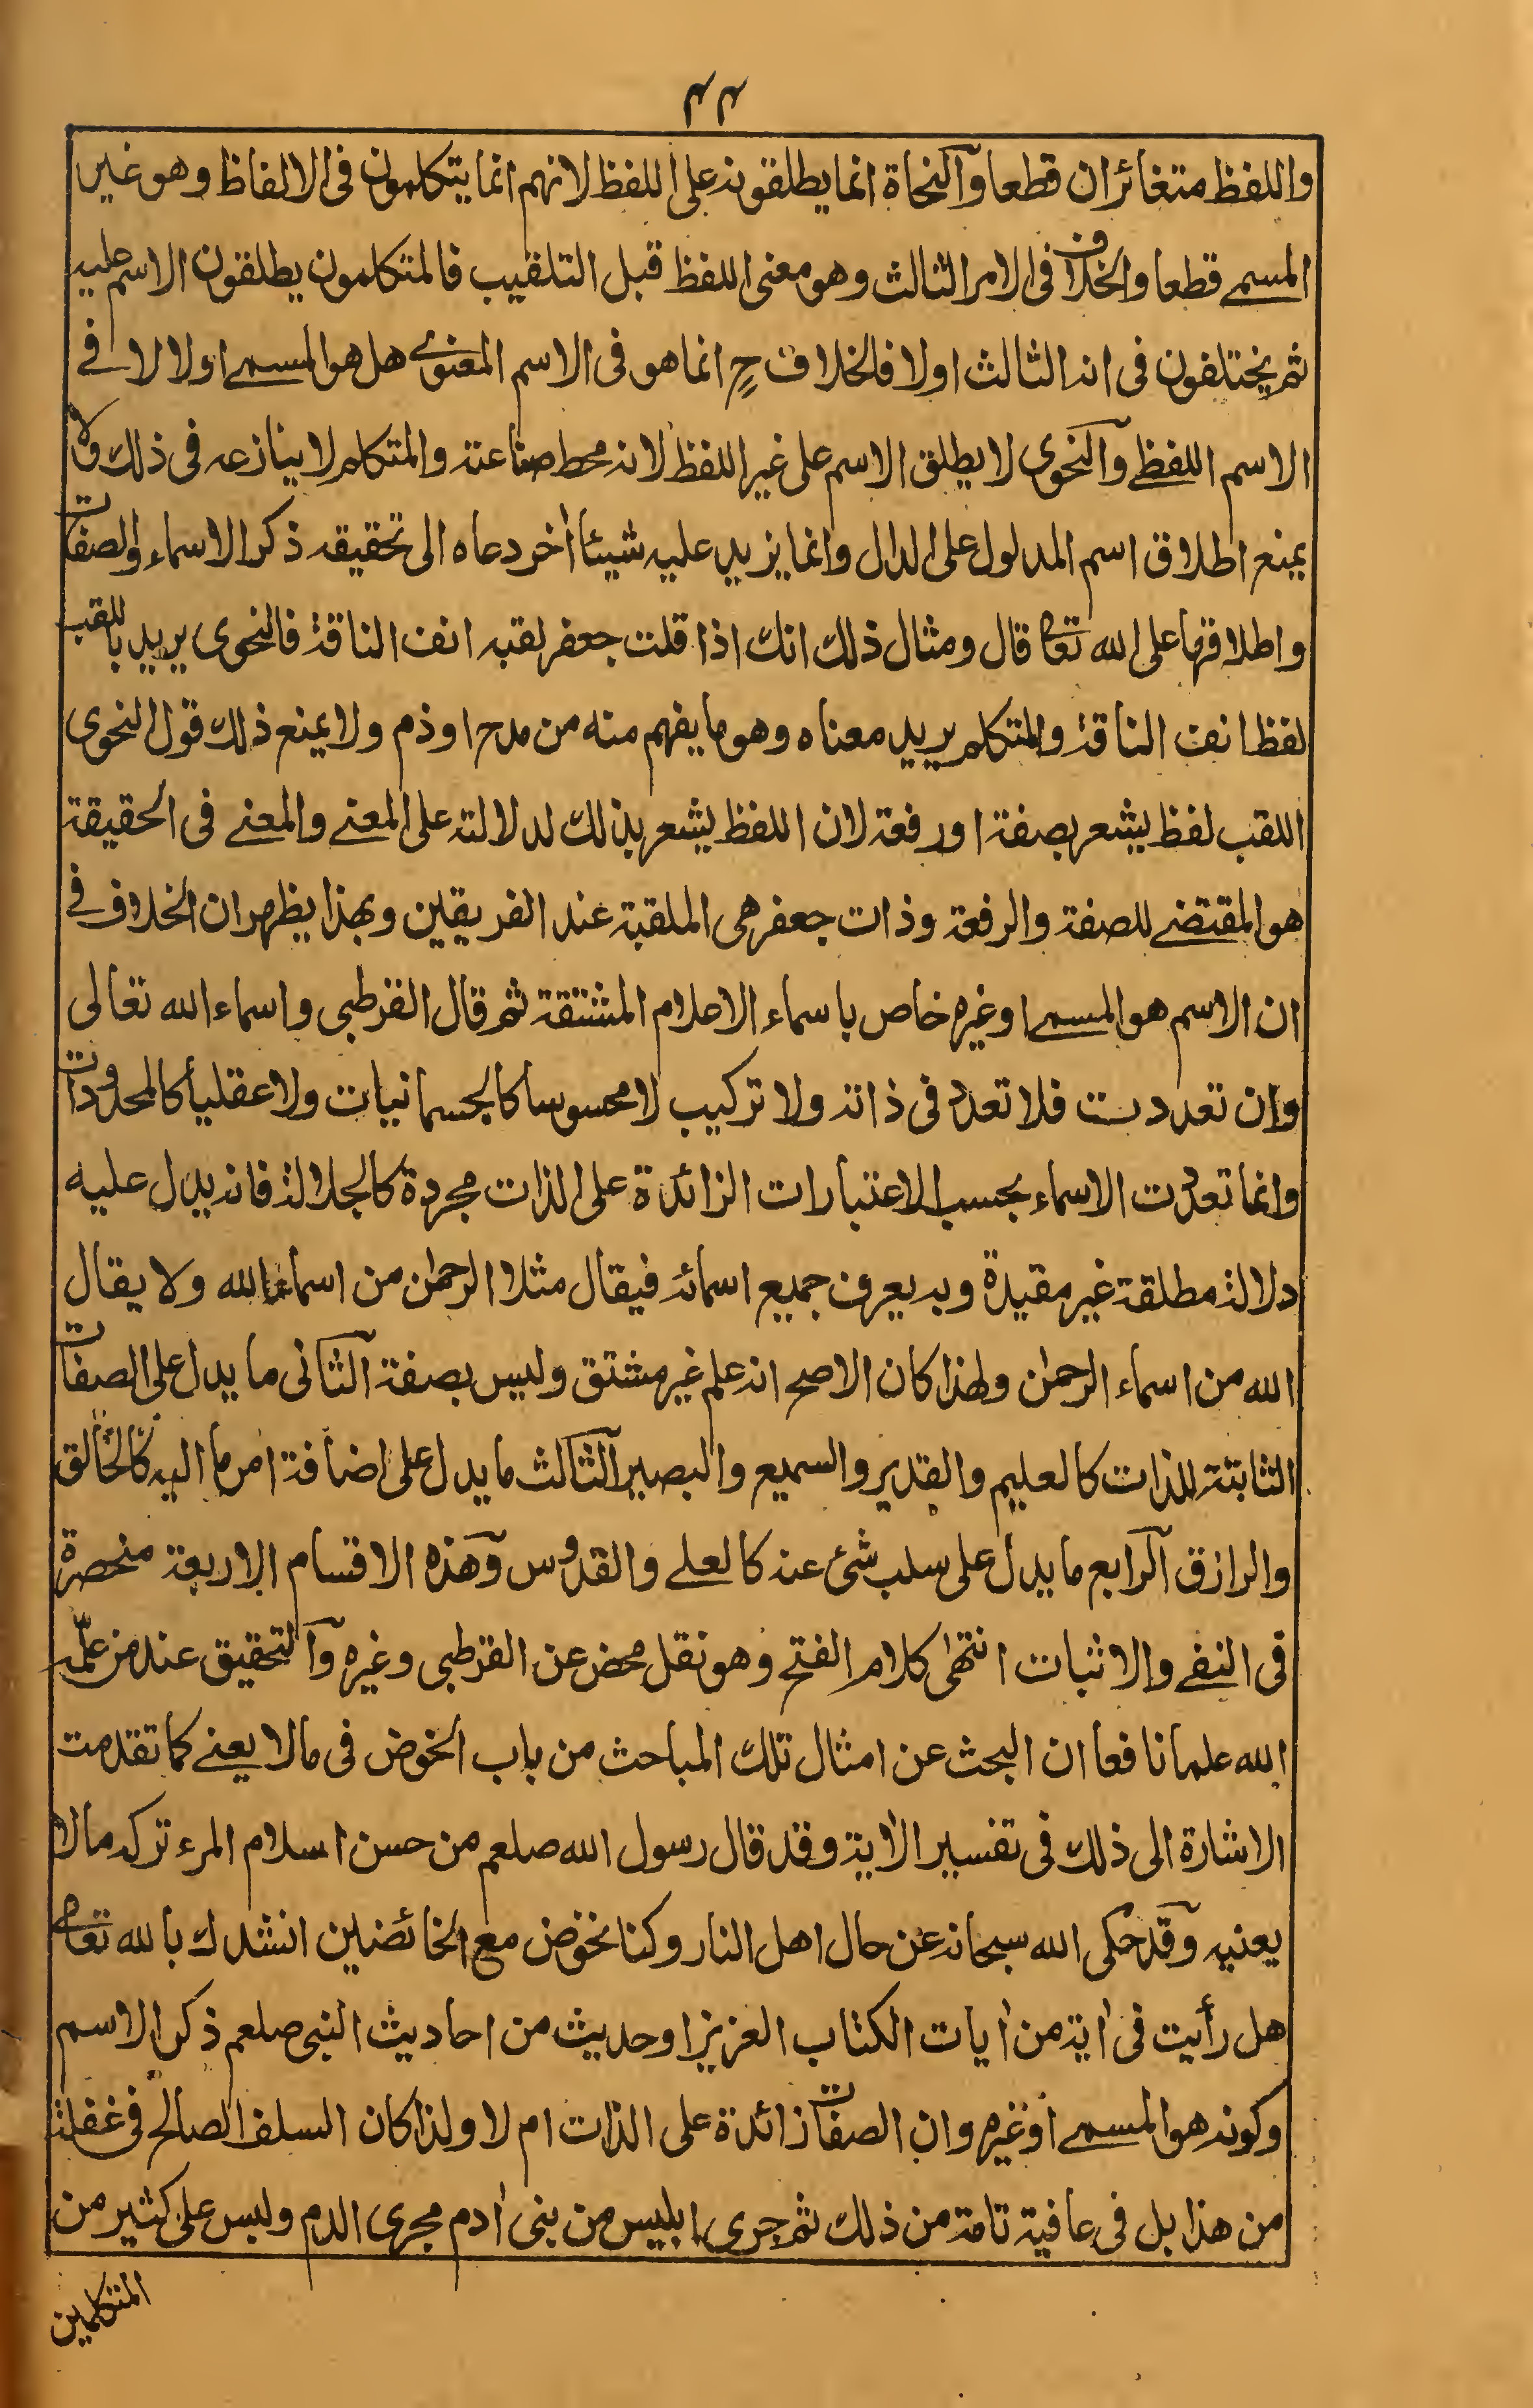 ٤٤
واللفظ متغائران قطعا والنحاة انما يطلقونه على اللفظ لانهم انما يتكلمون فى الالفاظ وهو غير
المسمى قطعا والخلاف فى الامر الثالث وهو معنى اللفظ قبل التلقيب فالمتكلمون يطلقون الاسم عليه
ثم يختلفون فى انه الثالث اولا فالخلاف ح انما هو فى الاسم المعنوى هل هو المسمى اولا لا فى
الاسم اللفظى والنحوى لا يطلق الاسم على غير اللفظ لانه محط صناعته والمتكلم لا ينازعه فى ذلك ولا
يمنع اطلاق اسم المدلول على الدال وانما يزيد عليه شيئا أخر دعاه الى تحقيقه ذكر الاسماء والصفات
واطلاقها على الله تعا قال ومثال ذلك انك اذا قلت جعفر لقبه انف الناقة فالنحوى يريد باللقب
لفظ انف الناقة والمتكلم يريد معناه وهو ما يفهم منه من مدح او ذم ولا يمنع ذلك قول النحوى
اللقب لفظ يشعر بصفة او رفعة لان اللفظ يشعر بذلك لدلالته على المعنى والمعنى فى الحقيقة
هو المقتضى للصفة والرفعة وذات جعفر هى الملقبة عند الفريقين وبهذا يظهر ان الخلاف فى
ان الاسم هو المسمى او غيره خاص باسماء الاعلام المشتقة ثم قال القرطبى واسماء الله تعالى
وان تعددت فلا تعدد فى ذاته ولا تركيب لا محسوسا كالجسمانيات ولا عقليا كالمحدودات
وانما تعددت الاسماء بحسب الاعتبارات الزائدة على الذات مجردة كالجلالة فانه يدل عليه
دلالة مطلقة غير مقيدة وبه يعرف جميع اسمائه فيقال مثلا الرحمٰن من اسماء الله ولا يقال
الله من اسماء الرحمٰن ولهذا كان الاصح انه علم غير مشتق وليس بصفة الثانى ما يدل على الصفات
الثابتة للذات كالعليم والقدير والسميع والبصير الثالث ما يدل على اضافة امر ما اليه كالخالق
والرازق الرابع ما يدل على سلب شئ عنه كالعلى والقدوس وهذه الاقسام الاربعة منحصرة
فى النفى والاثبات انتهى كلام الفتح وهو نقل محض عن القرطبى وغيره والتحقيق عند من علّمه
الله علما نافعا ان البحث عن امثال تلك المباحث من باب الخوض فى ما لا يعنى كما تقدمت
الاشارة الى ذلك فى تفسير الأية وقد قال رسول الله صلعم من حسن اسلام المرء تركه ما لا
يعنيه وقد حكى الله سبحانه عن حال اهل النار وكنا نخوض مع الخائضين انشدك بالله تعا
هل رأيت فى أية من أيات الكتاب العزيز او حديث من احاديث النبى صلعم ذكر الاسم
وكونه هو المسمى او غيره وان الصفات زائدة على الذات ام لا ولذا كان السلف الصالح فى غفلة
من هذا بل فى عافية تامة من ذلك ثم جرى ابليس من بنى أدم مجرى الدم ولبس على كثير من
المتكلمين